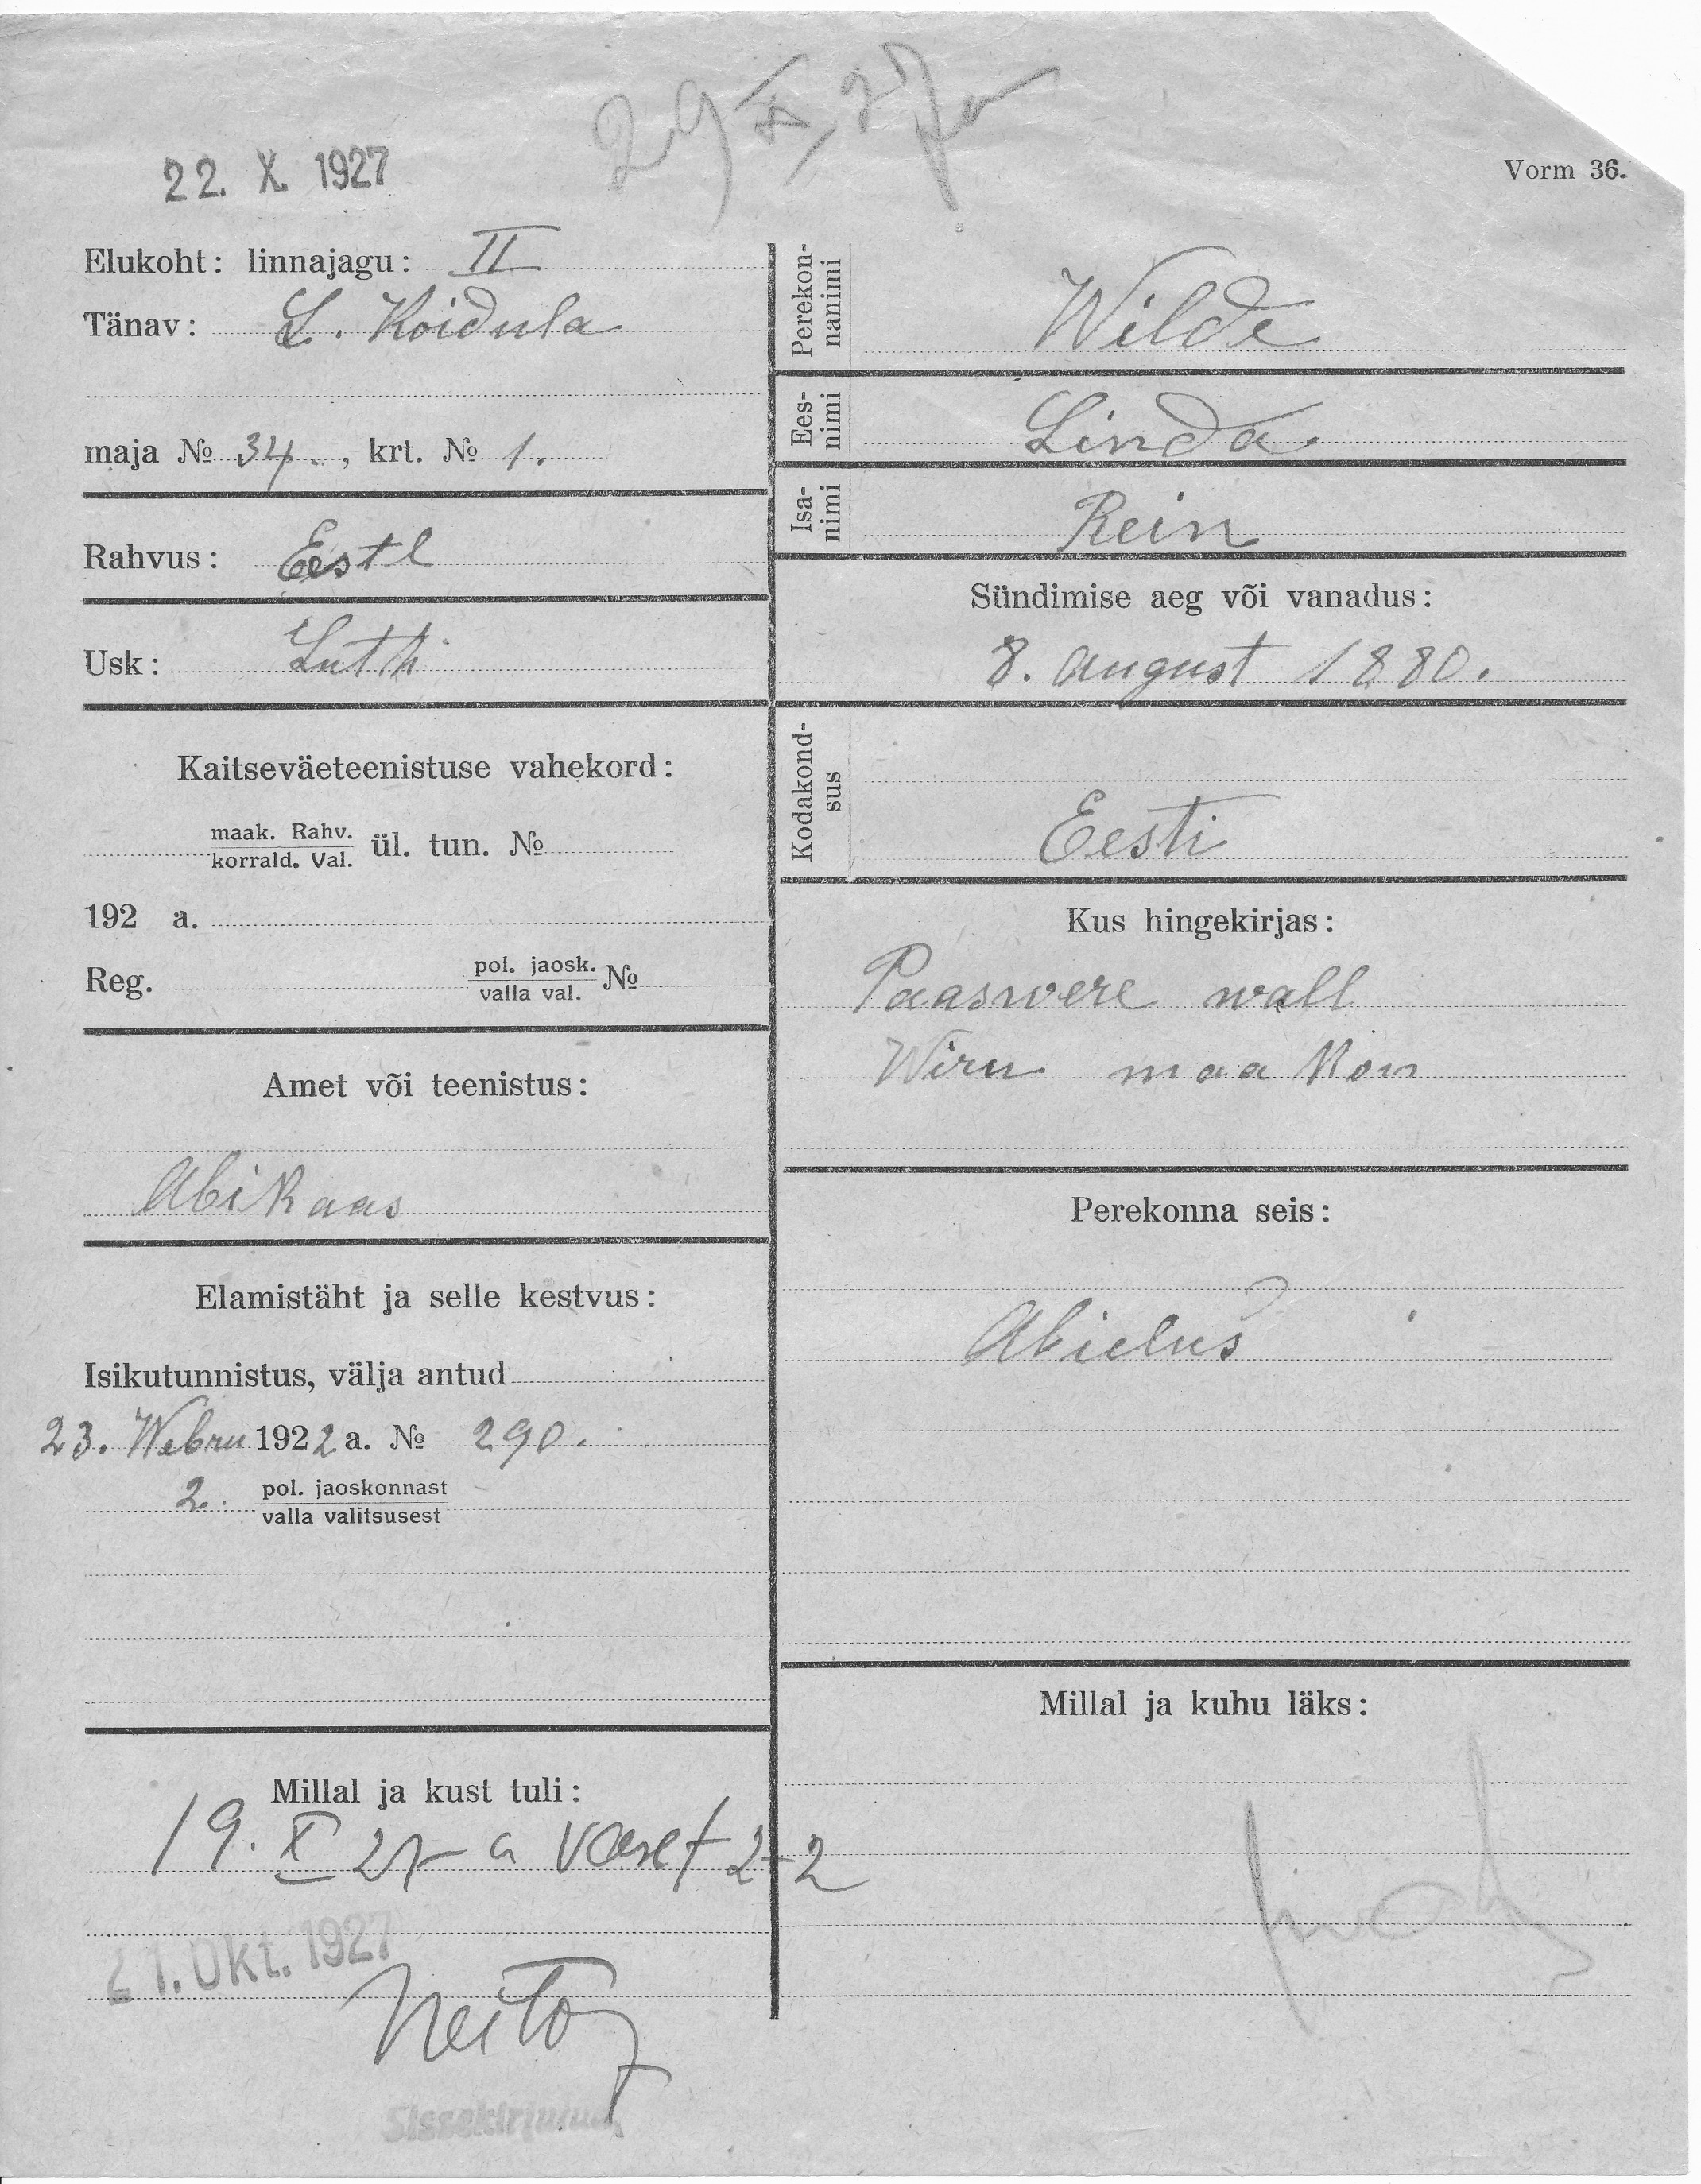 29 X 27
22. X. 1927
Vorm 36.
Elukoht: linnajagu: II
Tänav: L. Koidula
maja № 34., krt. № 1.
Rahvus: Eesti
Usk: Luth
Kaitseväeteenistuse vahekord:
maak. Rahv.
korrald. Val. ül. tun. №
192 a.
Reg. pol. jaosk. №
valla val.
Amet või teenistus:
Abikaas
Elamistäht ja selle kestvus:
Isikutunnistus, välja antud
23. Webru 1922 a. № 290.
2. pol. jaoskonnast
valla valitsusest
Millal ja kust tuli:
19. X 27 a 2-2
21. Okt. 1927
Sissekirjutud
Perekon-
nanimi
Wilde
Ees-
nimi
Linda.
Isa-
nimi
Rein
Sündimise aeg või vanadus:
8. August 1880.
Kodakond-
sus
Eesti
Kus hingekirjas:
Paaswere wall
Wiru maa kon
Perekonna seis:
Abielus
Millal ja kuhu läks: